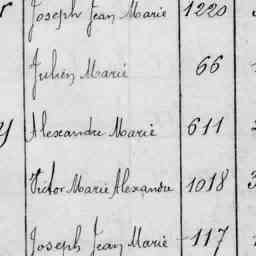 Joseph Jean Marie 1220
Julien Marie 66
y Alexandre Marie 611
Victor Marie Alexandre 1018 3
Joseph Jean Marie 117